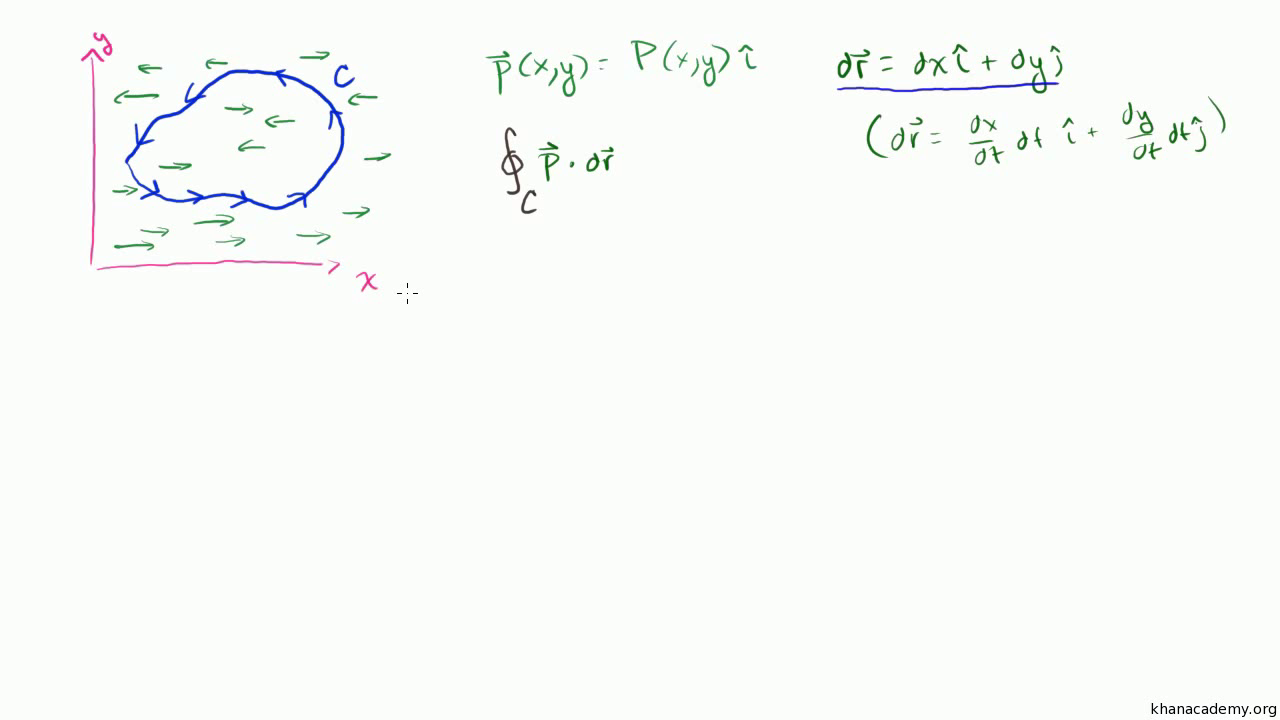 y
C
x
p⃗(x,y) = P(x,y) î
∮_C p⃗ · dr⃗
dr⃗ = dx î + dy ĵ
(dr⃗ = dx/dt dt î + dy/dt dt ĵ)
khanacademy.org